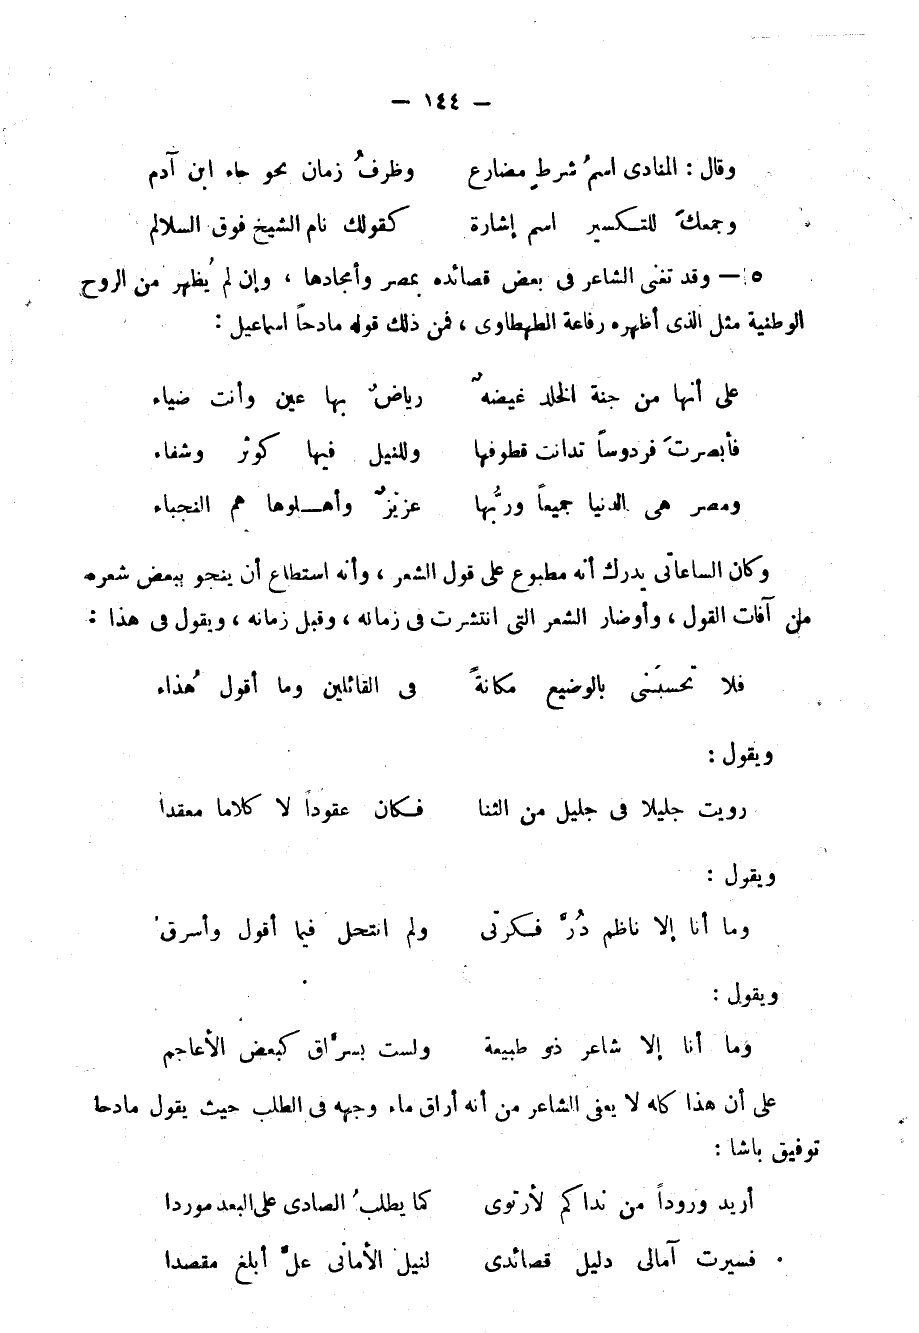 — ١٤٤ —
وقال : المنادى اسمُ شرطٍ مضارع وظرفُ زمان نحو جاء ابن آدم
وجمعكَ للتكسير اسم إشارة كقولك نام الشيخ فوق السلالم
٥ — وقد تغنى الشاعر فى بعض قصائده بمصر وأمجادها ، وإن لم يُظهر من الروح
الوطنية مثل الذى أظهره رفاعة الطهطاوى ، فمن ذلك قوله مادحاً اسماعيل :
على أنها من جنة الخلد غيضهٌ رياضٌ بها عين وأنت ضياء
فأبصرتَ فردوساً تدانت قطوفها وللنيل فيها كوثر وشفاء
ومصر هى الدنيا جميعاً وربُّها عزيزٌ وأهلوها هم النجباء
وكان الساعاتى يدرك أنه مطبوع على قول الشعر ، وأنه استطاع أن ينجو ببعض شعره
من آفات القول ، وأوضار الشعر التى انتشرت فى زمانه ، وقبل زمانه ، ويقول فى هذا :
فلا تحسبَنى بالوضيع مكانةً فى القائلين وما أقول هُذاء
ويقول :
رويت جليلا فى جليل من الثنا فكان عقوداً لا كلاما معقدا
ويقول :
وما أنا إلا ناظم دُرَّ فكرتى ولم انتحل فيما أقول وأسرق
ويقول :
وما أنا إلا شاعر ذو طبيعة ولست بسرَّاق كبعض الأعاجم
على أن هذا كله لا يعفى الشاعر من أنه أراق ماء وجهه فى الطلب حيث يقول مادحا
توفيق باشا :
أريد وروداً من نداكم لأرتوى كما يطلبُ الصادى على البعد موردا
فسيرت آمالى دليل قصائدى لنيل الأمانى علَّ أبلغ مقصدا